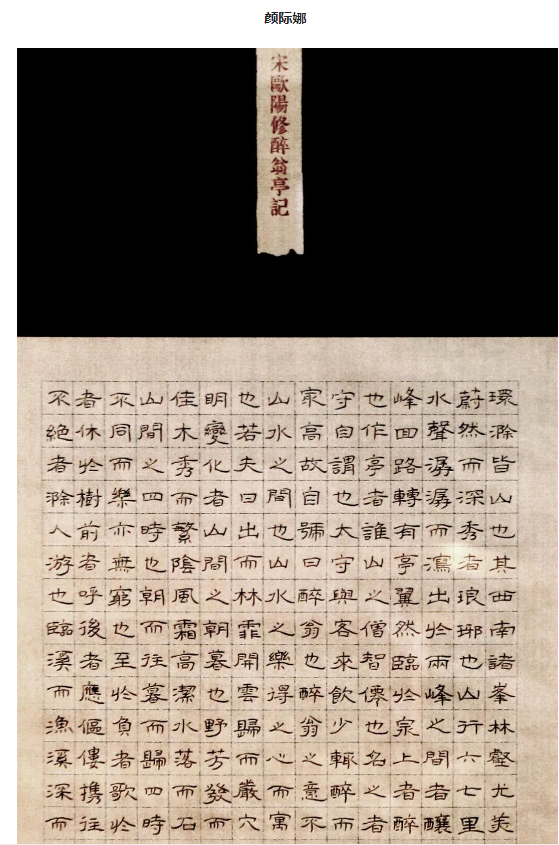 颜际娜
宋歐陽修醉翁亭記
環滁皆山也其西南諸峯林壑尤美
蔚然而深秀者琅琊也山行六七里
水聲潺潺而瀉出於兩峰之間者釀
峰回路轉有亭翼然臨於泉上者醉
也作亭者誰山之僧智僊也名之者
守自謂也太守與客來飲少輒醉而
㝡高故自號曰醉翁也醉翁之意不
山水之間也山水之樂得之心而寓
也若夫日出而林霏開雲歸而巖穴
明變化者山間之朝暮也野芳發而
佳木秀而繁陰風霜高潔水落而石
山間之四時也朝而往暮而歸四時
不同而樂亦無窮也至於負者歌於
者休於樹前者呼後者應傴僂携往
不絕者滁人游也臨溪而漁溪深而